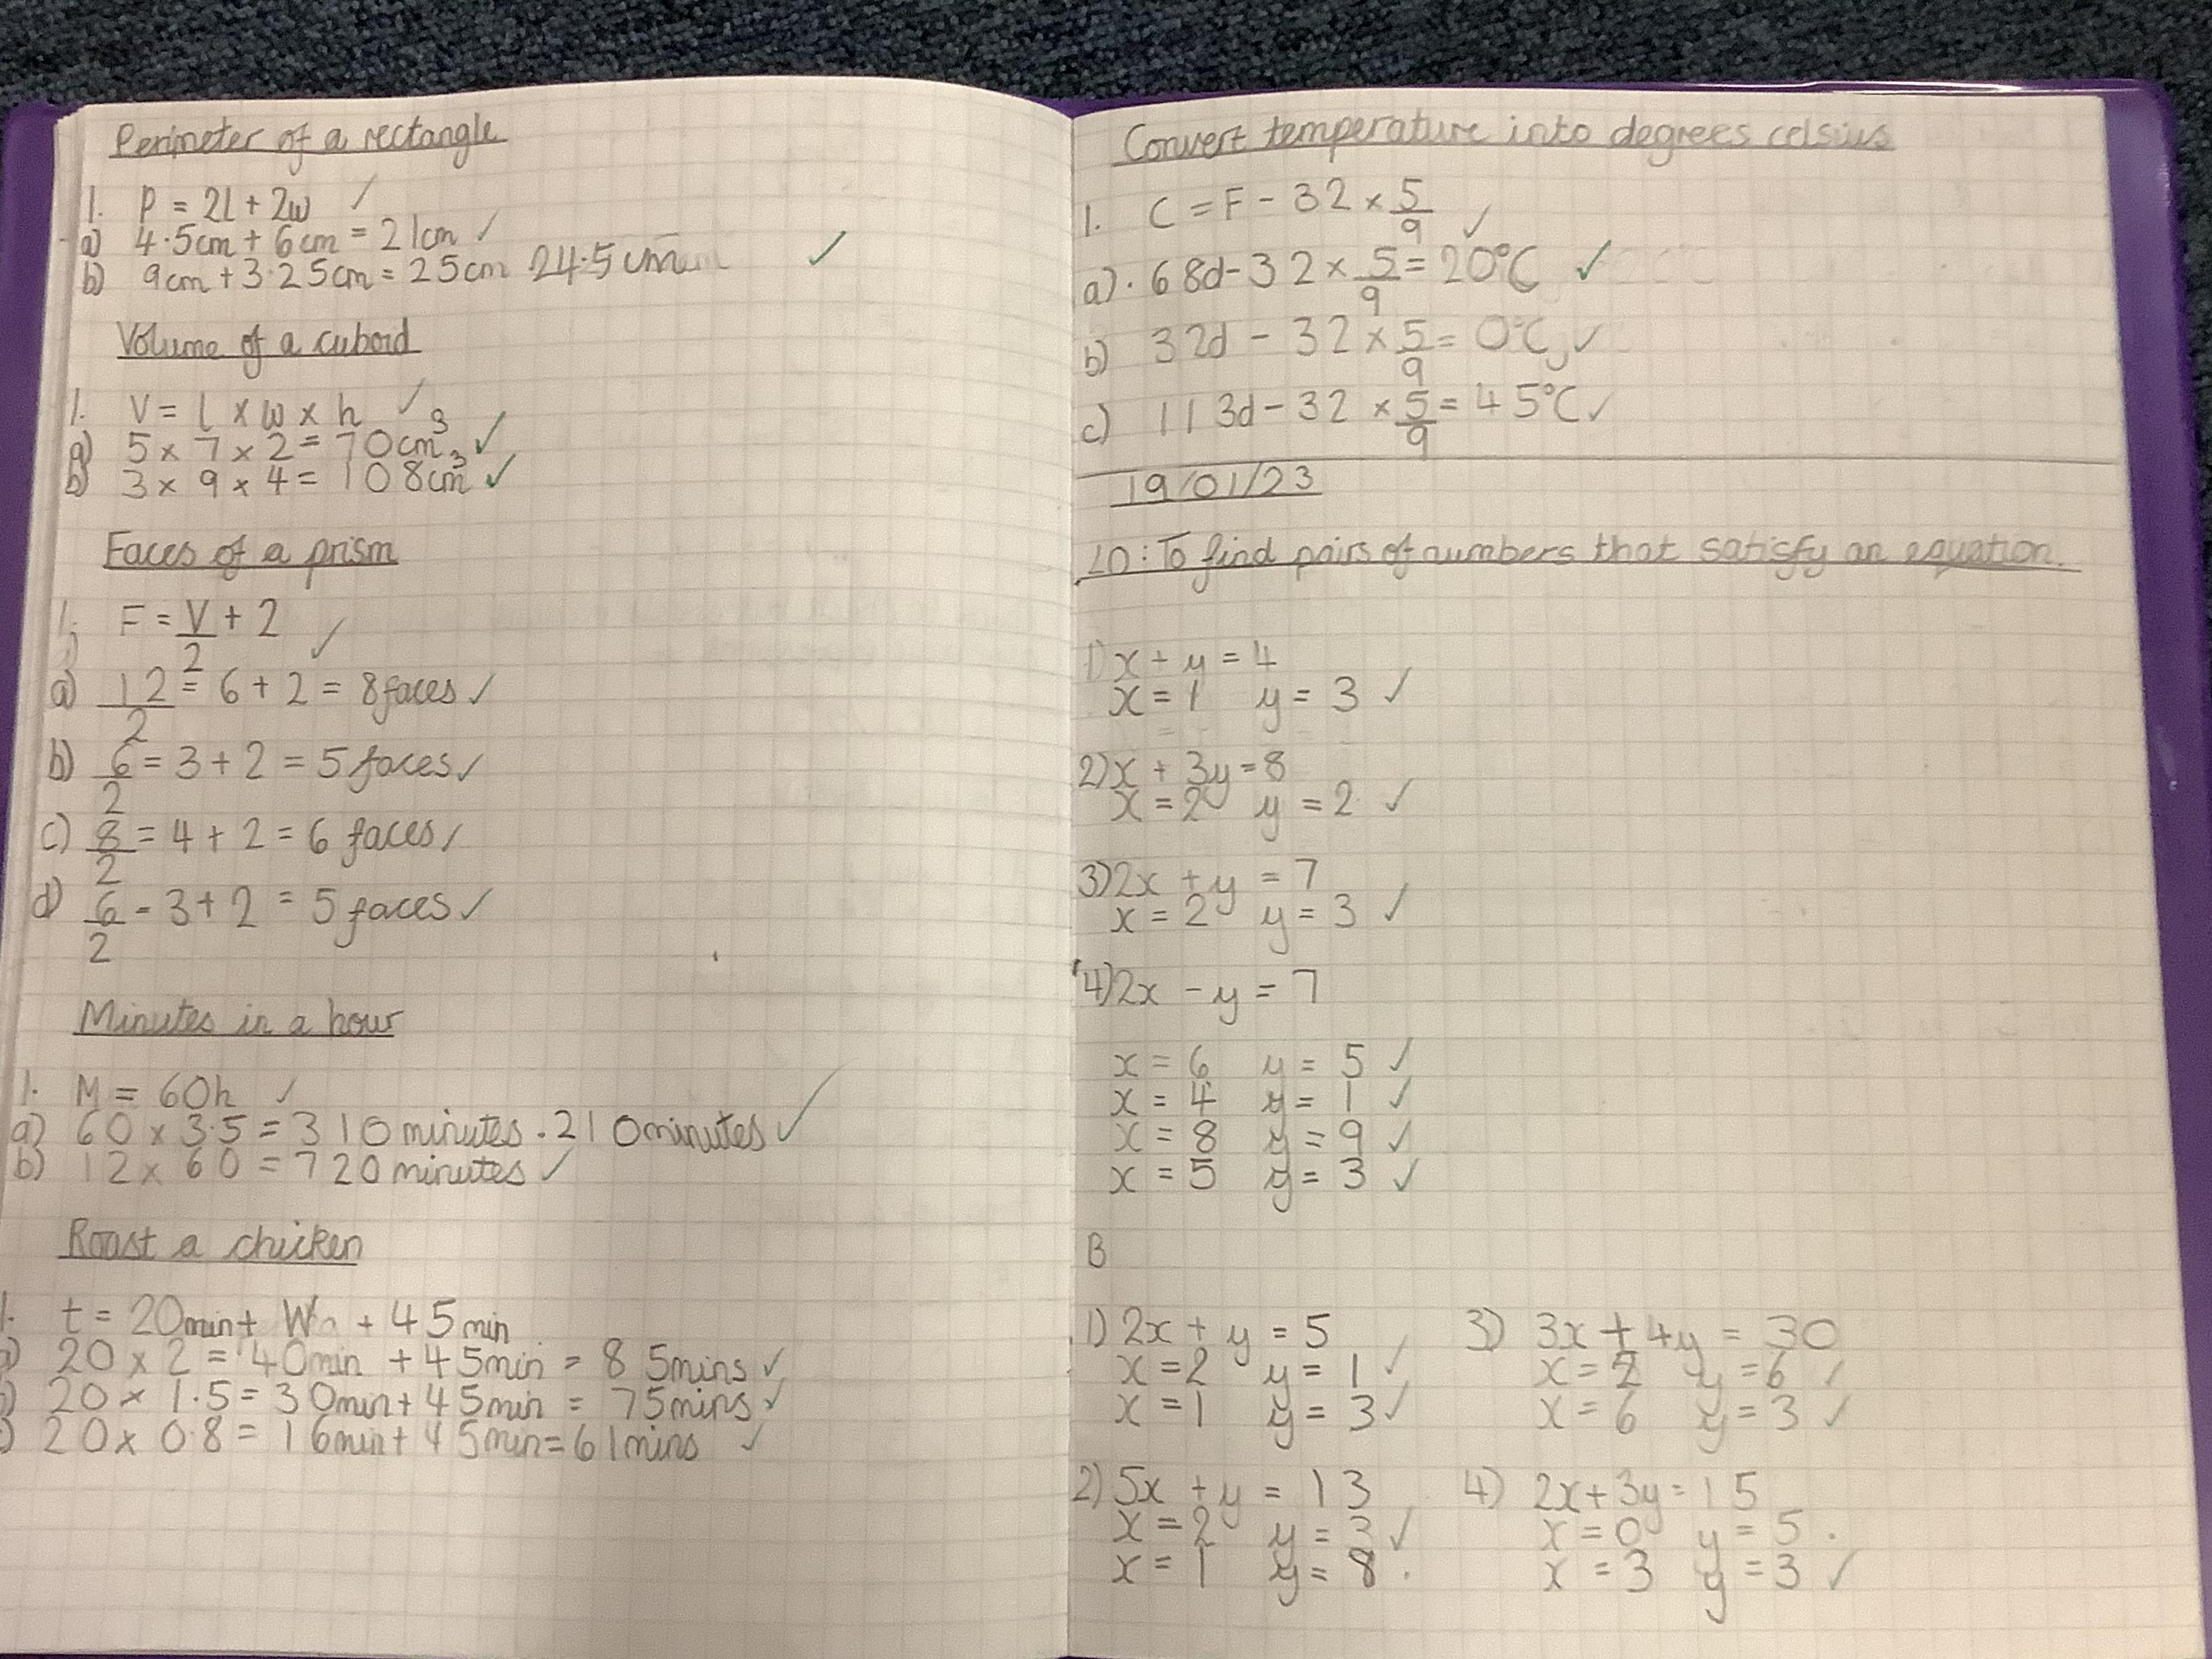 Perimeter of a rectangle
1. P = 2l + 2w ✓
a) 4.5cm + 6cm = 21cm ✓
b) 9cm + 3.25cm = 25cm 24.5cm ✓
Volume of a cuboid
1. V = l x w x h ✓
a) 5 x 7 x 2 = 70cm³ ✓
b) 3 x 9 x 4 = 108cm³ ✓
Faces of a prism
1. F = V/2 + 2 ✓
a) 12/2 = 6 + 2 = 8 faces ✓
b) 6/2 = 3 + 2 = 5 faces ✓
c) 8/2 = 4 + 2 = 6 faces ✓
d) 6/2 - 3 + 2 = 5 faces ✓
Minutes in a hour
1. M = 60h ✓
a) 60 x 3.5 = 310 minutes . 210 minutes ✓
b) 12 x 60 = 720 minutes ✓
Roast a chicken
1. t = 20min + W + 45min
20 x 2 = 40min + 45min = 85mins ✓
20 x 1.5 = 30min + 45min = 75mins ✓
20 x 0.8 = 16min + 45min = 61mins ✓
Convert temperature into degrees celsius
1. C = F - 32 x 5/9 ✓
a) . 68d - 32 x 5/9 = 20°C ✓
b) 32d - 32 x 5/9 = 0°C ✓
c) 113d - 32 x 5/9 = 45°C ✓
19/01/23
LO: To find pairs of numbers that satisfy an equation.
1) x + y = 4
x = 1 y = 3 ✓
2) x + 3y = 8
x = 2 y = 2 ✓
3) 2x + y = 7
x = 2 y = 3 ✓
4) 2x - y = 7
x = 6 y = 5 ✓
x = 4 y = 1 ✓
x = 8 y = 9 ✓
x = 5 y = 3 ✓
B
1) 2x + y = 5
x = 2 y = 1 ✓
x = 1 y = 3 ✓
2) 5x + y = 13
x = 2 y = 3 ✓
x = 1 y = 8 .
3) 3x + 4y = 30
x = 2 y = 6 ✓
x = 6 y = 3 ✓
4) 2x + 3y = 15
x = 0 y = 5 .
x = 3 y = 3 ✓